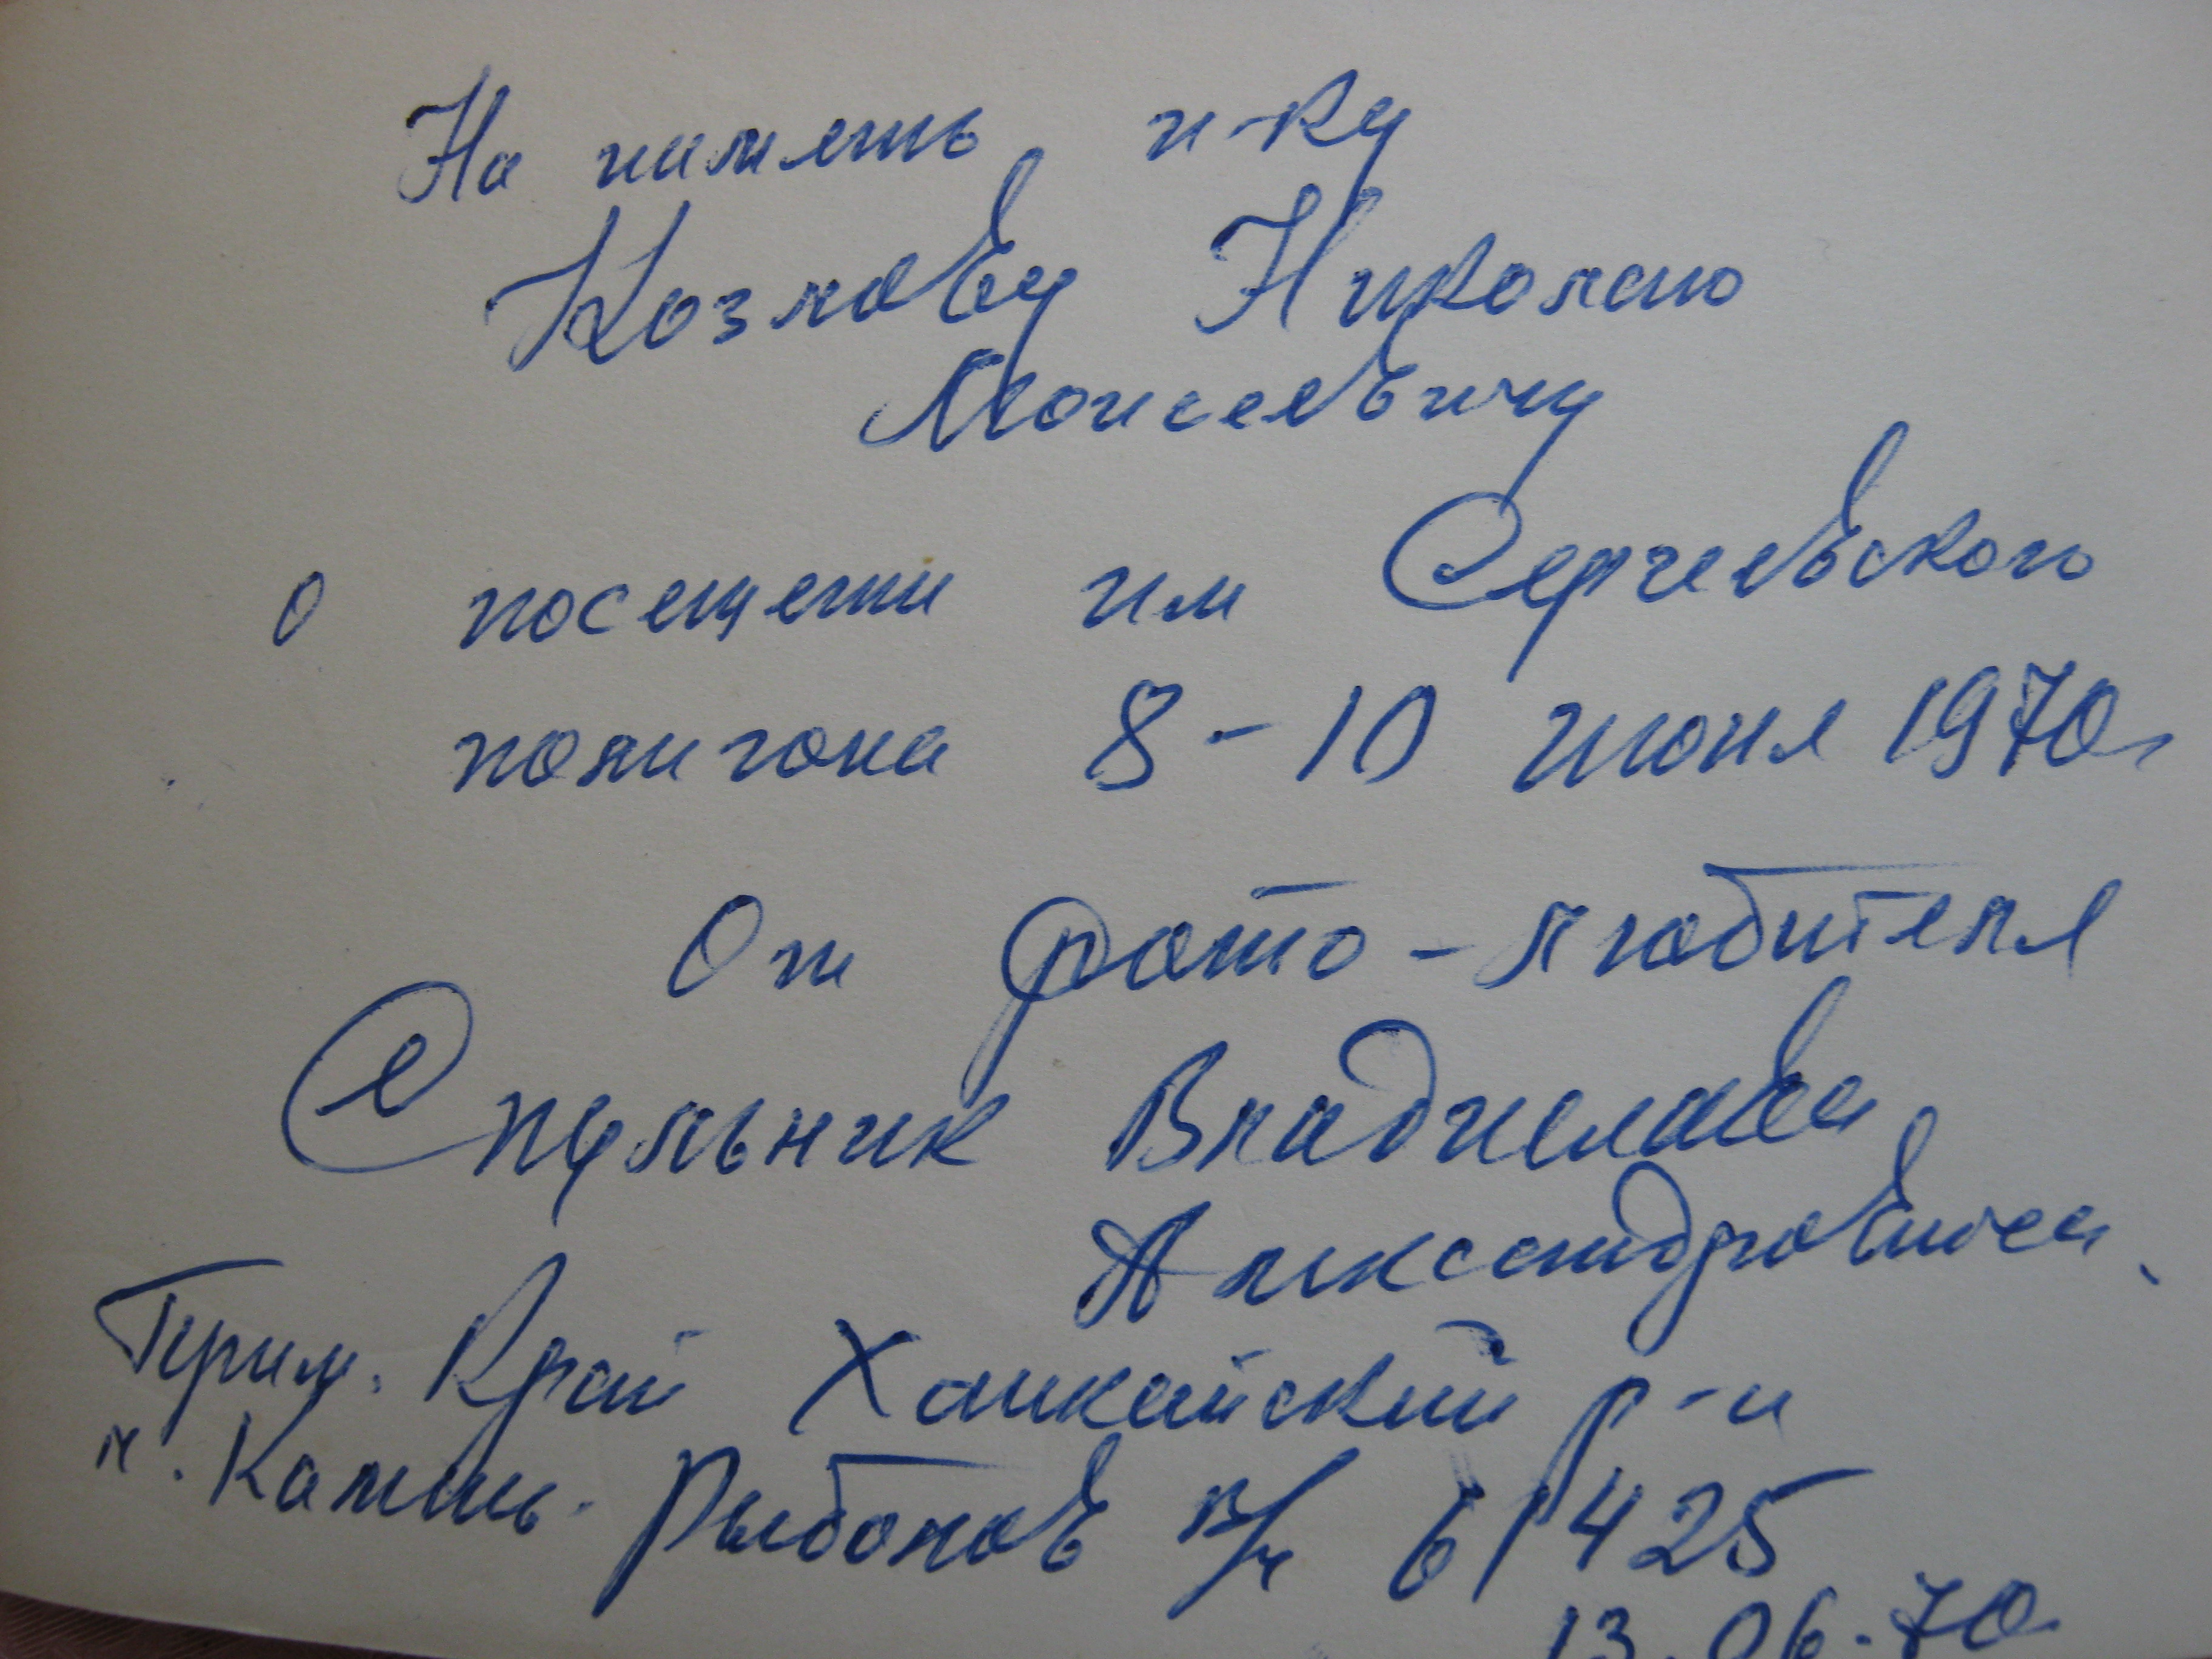 На память п-ку
Козлову Николаю
Моисеевичу
о посещении им Сергеевского
полигона 8-10 июня 1970г.
От фото-любителя
Спульник Владислава
Александровича.
Прим. Край Ханкайский р-н
п. Камень-Рыболов в/ч 61425
13.06.70